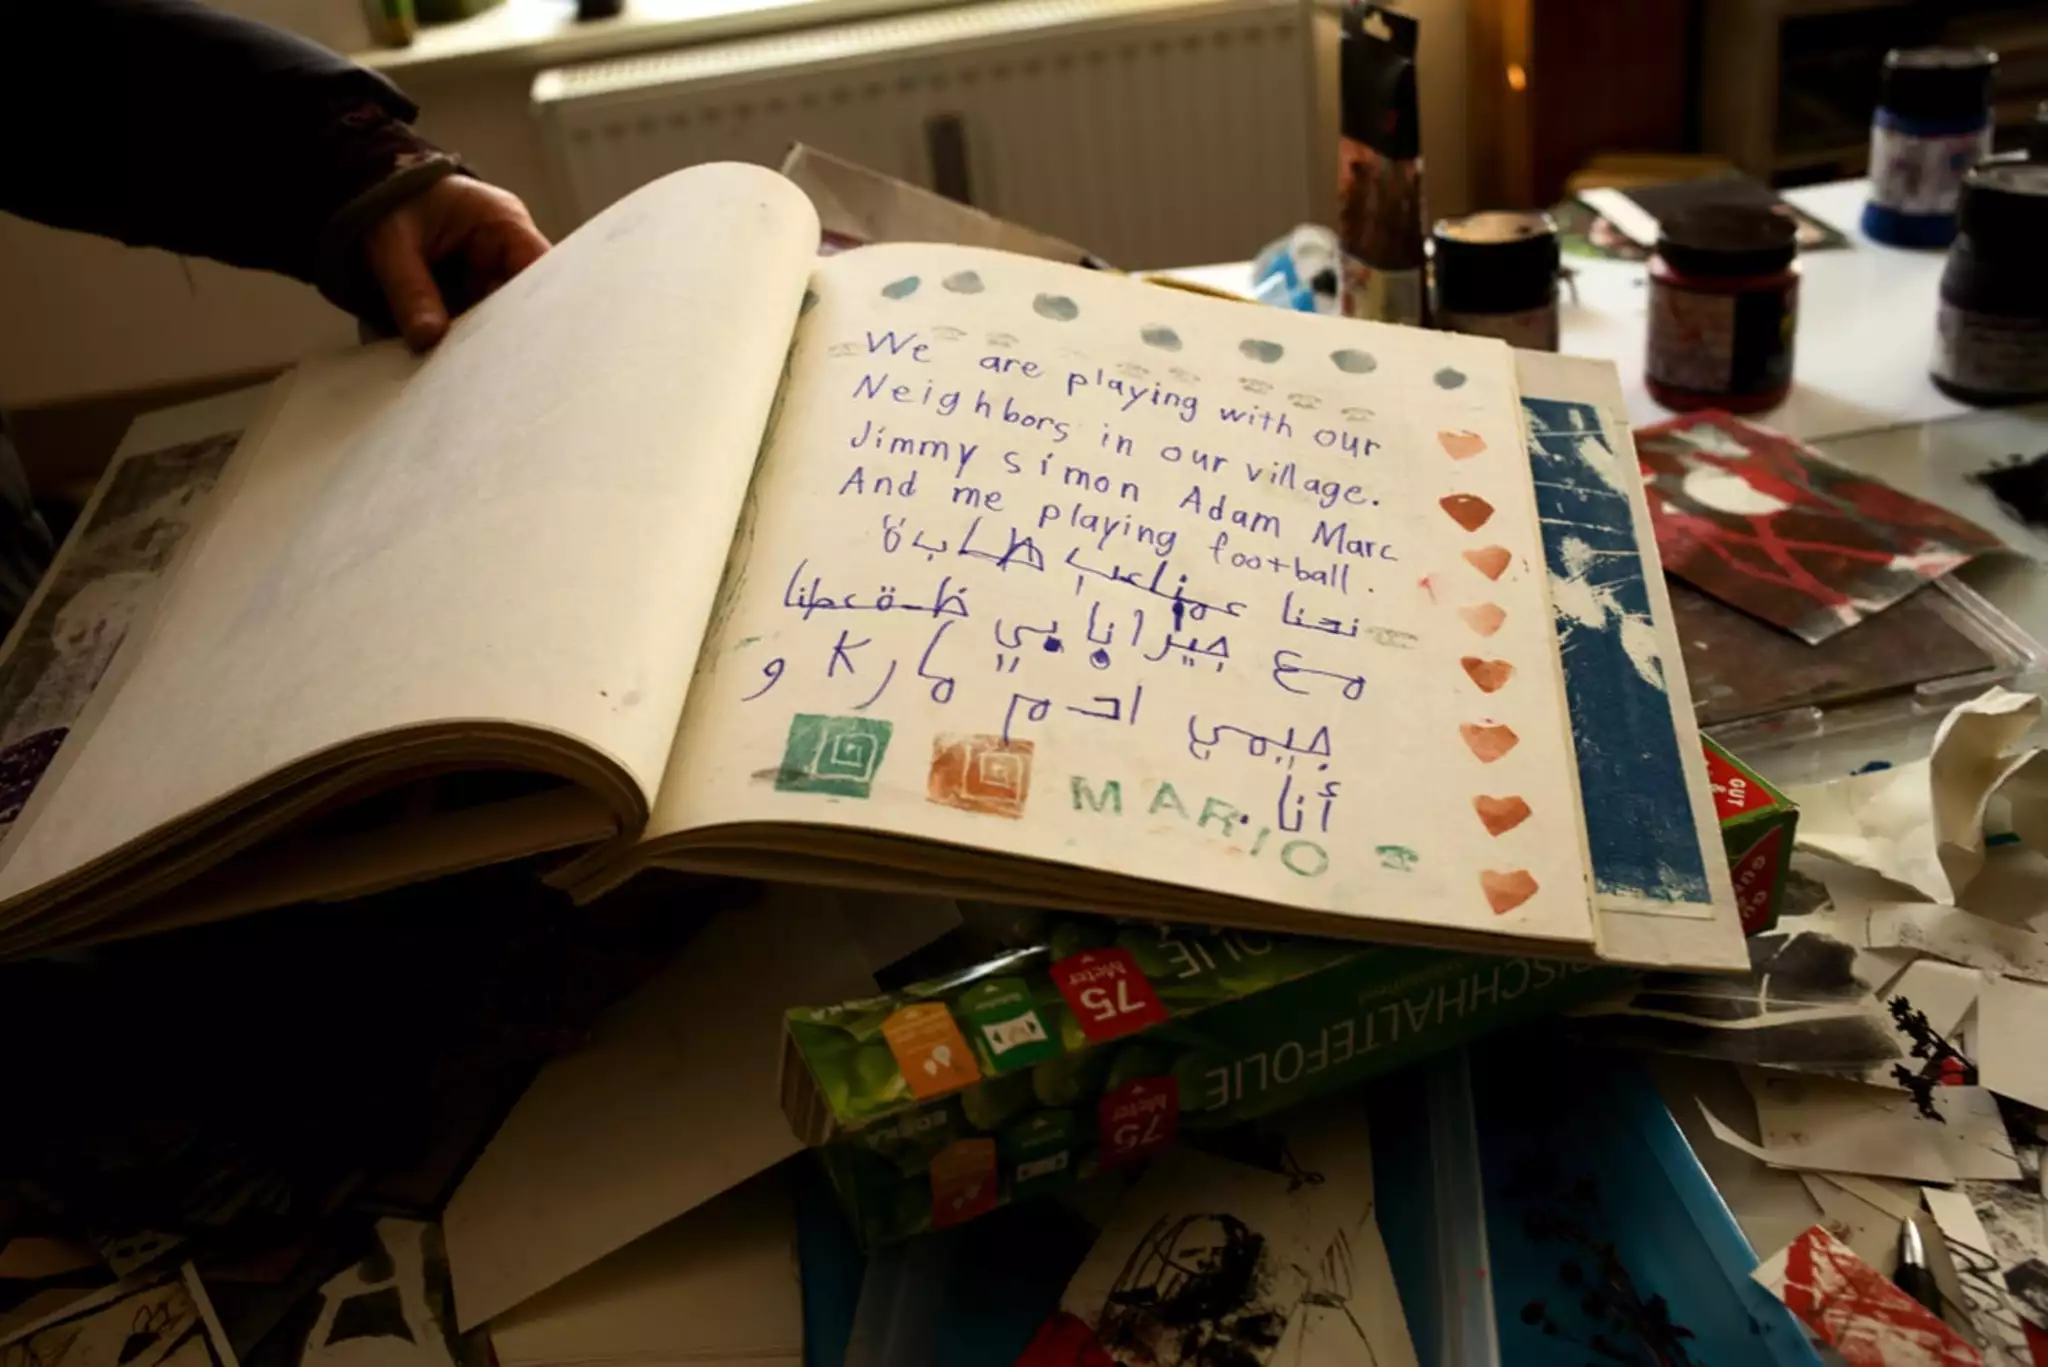 We are playing with our
Neighbors in our village.
Jimmy simon Adam Marc
And me playing football.
نحنا عمنلعب طابة
مع جيراننا بي ظيعطنا
جيمي ادم مارK و
أنا.
MARIO
75
Meter
FRISCHHALTEFOLIE
75
Meter
EDEKA
GUT